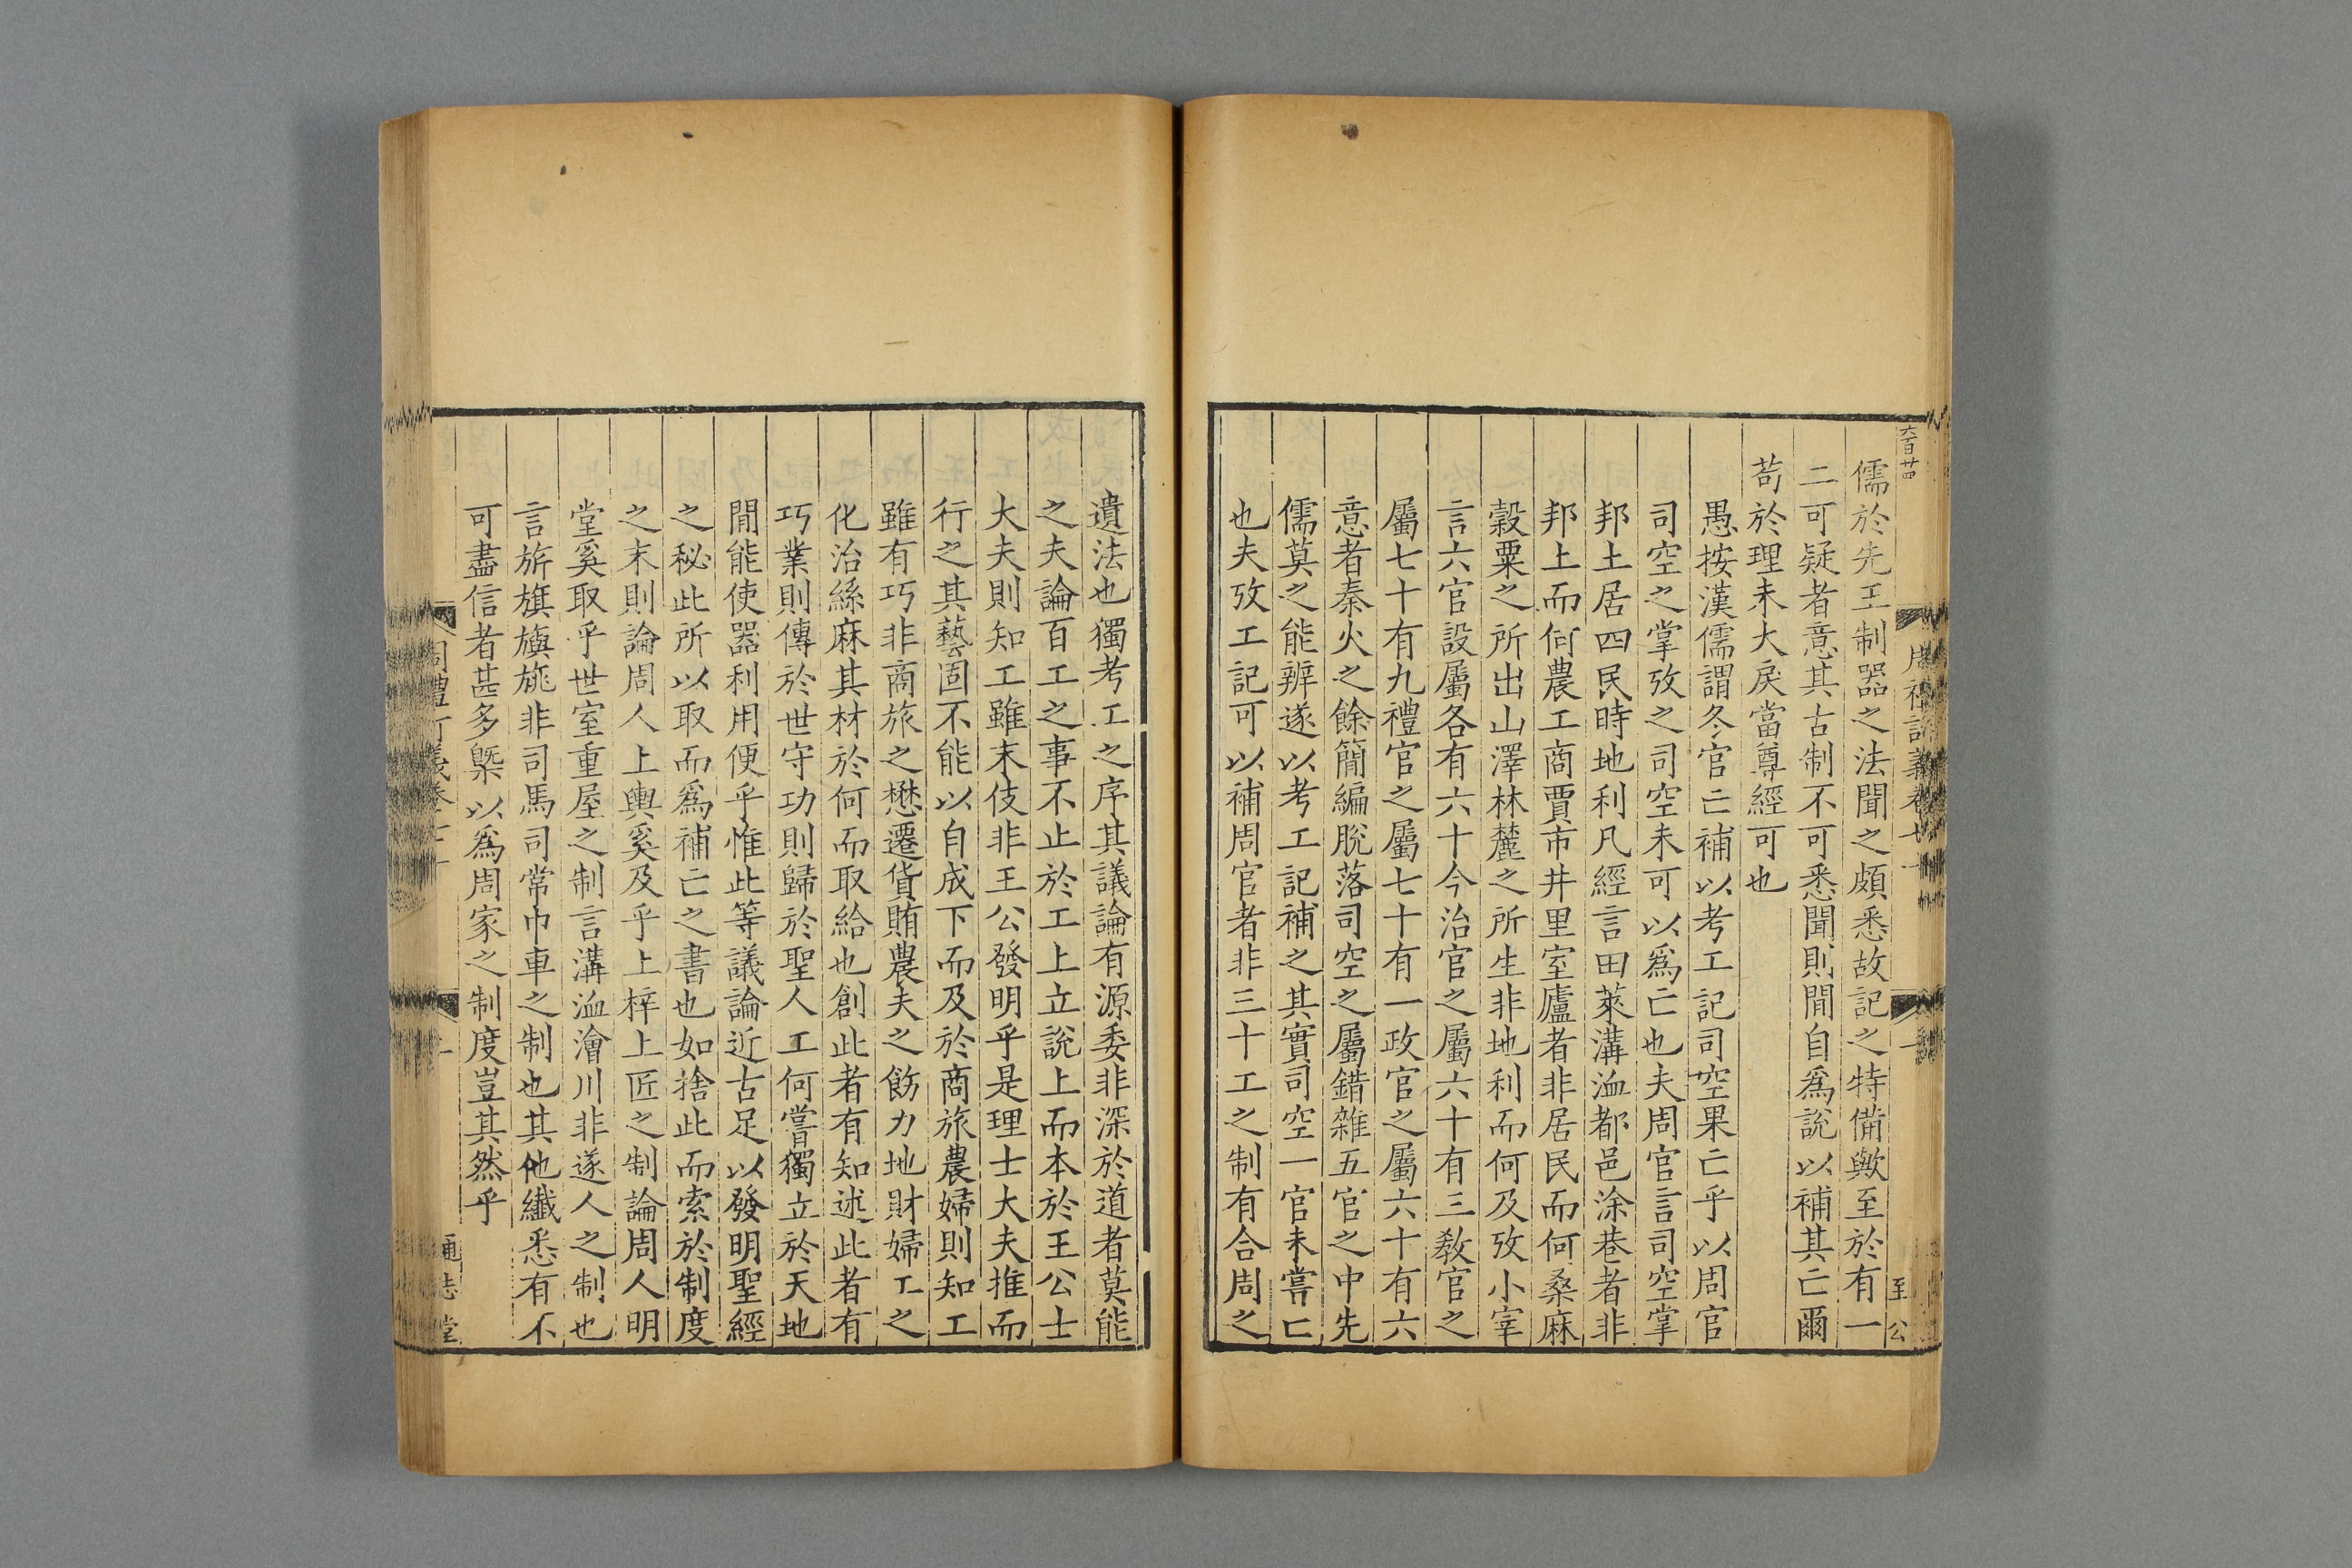 六百廿四
儒於先王制器之法聞之頗悉故記之特備歟至於有一
二可疑者意其古制不可悉聞則間自爲說以補其亡爾
苟於理未大戾當尊經可也
愚按漢儒謂冬官亡補以考工記司空果亡乎以周官
司空之掌攷之司空未可以爲亡也夫周官言司空掌
邦土居四民時地利凡經言田萊溝洫都邑涂巷者非
邦土而何農工商賈市井里室廬者非居民而何桑麻
穀粟之所出山澤林麓之所生非地利而何及攷小宰
言六官設屬各有六十今治官之屬六十有三教官之
屬七十有九禮官之屬七十有一政官之屬六十有六
意者秦火之餘簡編脫落司空之屬錯雜五官之中先
儒莫之能辨遂以考工記補之其實司空一官未嘗亡
也夫攷工記可以補周官者非三十工之制有合周之
遺法也獨考工之序其議論有源委非深於道者莫能
之夫論百工之事不止於工上立說上而本於王公士
大夫則知工雖末伎非王公發明乎是理士大夫推而
行之其藝固不能以自成下而及於商旅農婦則知工
雖有巧非商旅之懋遷貨賄農夫之飭力地財婦工之
化治絲麻其材於何而取給也創此者有知述此者有
巧業則傳於世守功則歸於聖人工何嘗獨立於天地
間能使器利用便乎惟此等議論近古足以發明聖經
之秘此所以取而爲補亡之書也如捨此而索於制度
之末則論周人上輿奚及乎上梓上匠之制論周人明
堂奚取乎世室重屋之制言溝洫澮川非遂人之制也
言旂旗旟旐非司馬司常巾車之制也其他纖悉有不
可盡信者甚多槩以爲周家之制度豈其然乎